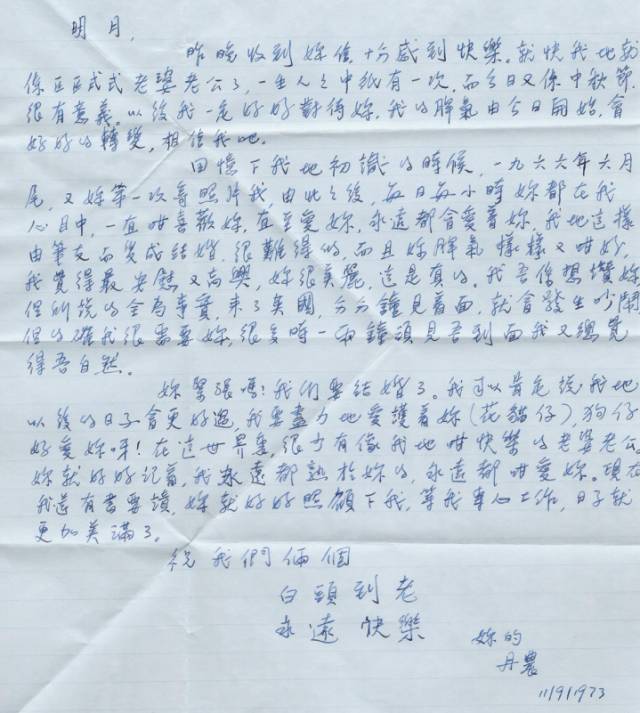 明月，
昨晚收到妳信，十分感到快樂。就快我地就
係正正式式老婆老公了，一生人之中祇有一次，而今日又係中秋節，
很有意義。以後我一定好好對待妳，我的脾氣由今日開始，會
好好的轉變，相信我吧。
回憶下我地初識的時候，一九六六年六月
尾，又妳第一次寄照片我，由此之後，每日每小時妳都在我
心目中，一直咁喜歡妳，直至愛妳，永遠都會愛着妳，我地這樣
由筆友而變成結婚，很難得的，而且妳脾氣樣樣又咁好，
我覺得最安慰又高興，妳很美麗，這是真的。我吾係想讚妳
但所說的全為事實，來了美國，分分鐘見着面，就會發生吵鬧
但的確我很需要妳，很多時一兩鐘頭見吾到面我又總覺
得吾自然。
妳緊張嗎！我們要結婚了。我可以肯定說我地
以後的日子會更好過，我要盡力地愛護着妳（花貓仔），狗仔
好愛妳呀！在這世界裏，很少有像我地咁快樂的老婆老公
妳就好好記着，我永遠都熱於妳的，永遠都咁愛妳。現在
我還有書要讀，妳就好好照顧下我，等我專心工作，日子就
更加美滿了。
祝我們倆個
白頭到老
永遠快樂
妳的
丹農
11/9/1973